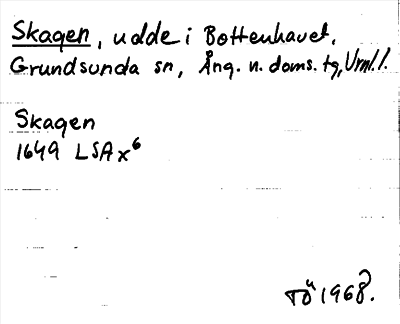 Skagen, udde i Bottenhavet.
Grundsunda sn, Ång. n. doms. tg, Vrml. l.
Skagen
1649 LSA x6
TÖ 1968.